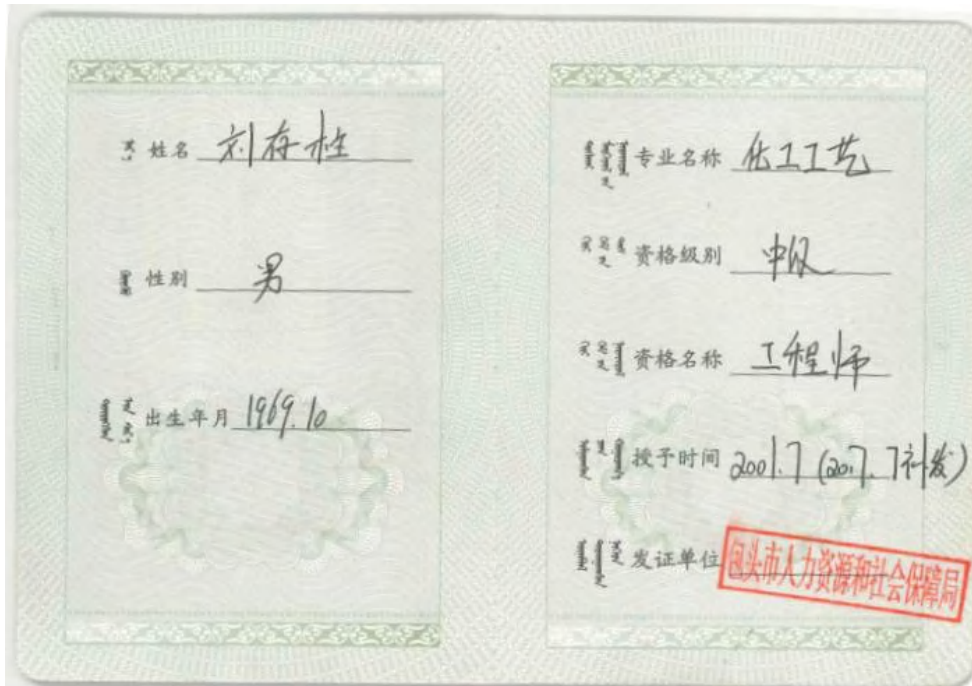 姓名 刘存柱
性别 男
出生年月 1969.10
专业名称 化工工艺
资格级别 中级
资格名称 工程师
授予时间 2001.7 (2017.7补发)
发证单位 包头市人力资源和社会保障局